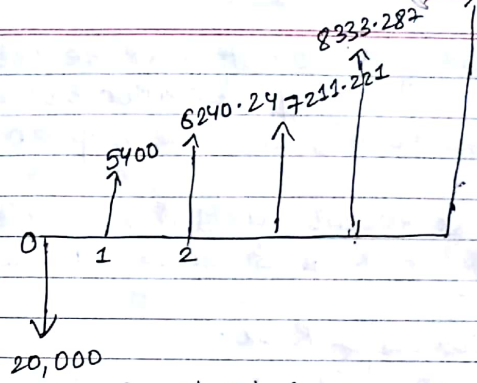 8333.287
6240.24 7211.221
5400
0 1 2
20,000